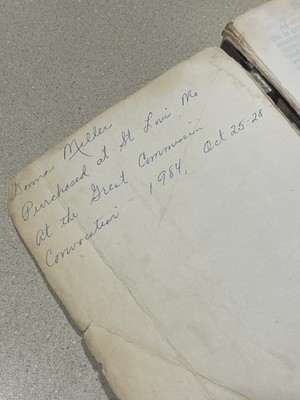 Donna Miller
Purchased at St Loui Mo
At the Great Commission
Convocation - 1984, Oct 25-28